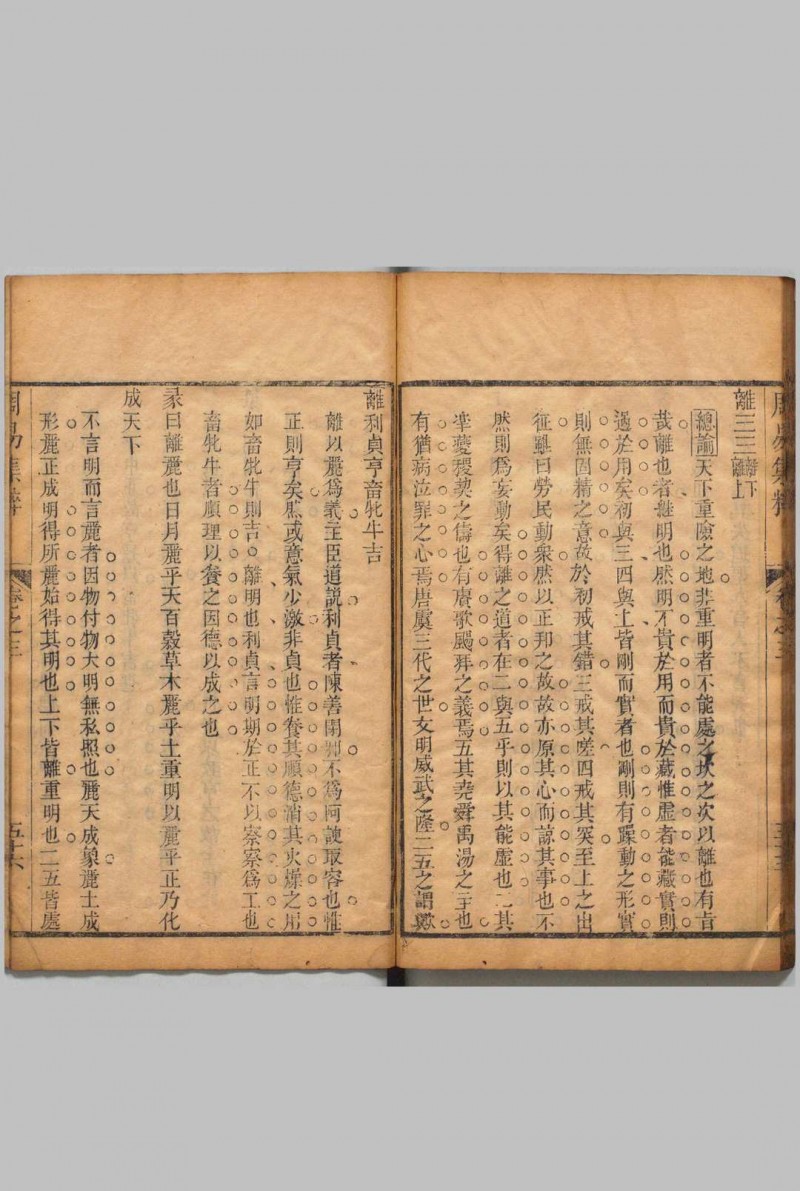 周易集粹 卷之三 五十三
離☲☲離下離上
總論天下重險之地非重明者不能處之坎之次以離也有旨
哉離也者無明也然明不貴於用而貴於藏惟虛者能藏實則
過於用矣初與三四與上皆剛而實者也剛則有躁動之形實
則無固精之意故於初戒其錯三戒其嗟四戒其突至上之出
征雖曰勞民動眾然以正邦之故故亦原其心而諒其事也不
然則爲妄動矣得離之道者在二與五乎則以其能虛也二其
臯夔稷契之儔也有賡歌颺拜之義焉五其堯舜禹湯之主也
有猶病泣罪之心焉唐虞三代之世文明威武之隆二五之謂歟
離利貞亨畜牝牛吉
離以麗爲義主臣道說利貞者陳善閑邪不爲阿諛取容也惟
正則亨矣然或意氣少激非貞也惟養其順德消其火燥之用
如畜牝牛則吉離明也利貞言明期於正不以察察爲工也
畜牝牛者順理以養之因德以成之也
彖曰離麗也日月麗乎天百穀草木麗乎土重明以麗乎正乃化
成天下
不言明而言麗者因物付物大明無私照也麗天成象麗土成
形麗正成明得所麗始得其明也上下皆離重明也二五皆處
周易集粹 卷之三 五十六